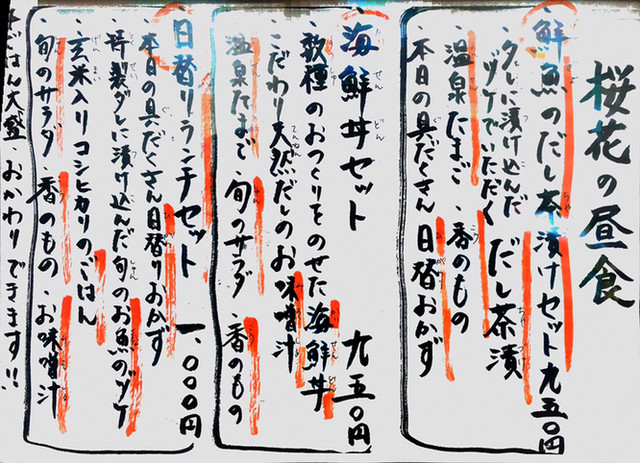 桜花の昼食
鮮魚のだし茶漬けセット九五〇円
・タレに漬け込んだ
ヅケでいただく だし茶漬
・温泉たまご ・香のもの
・本日の具だくさん 日替おかず
海鮮丼セット 九五〇円
・数種のおつくりをのせた海鮮丼
・こだわり天然だしのお味噌汁
・温泉たまご ・旬のサラダ ・香のもの
日替りランチセット 一、〇〇〇円
・本日の具だくさん日替りおかず
・特製ダレに漬け込んだ旬のお魚のヅケ
・玄米入りコシヒカリのごはん
・旬のサラダ ・香のもの ・お味噌汁
ごはん大盛 おかわりできます!!